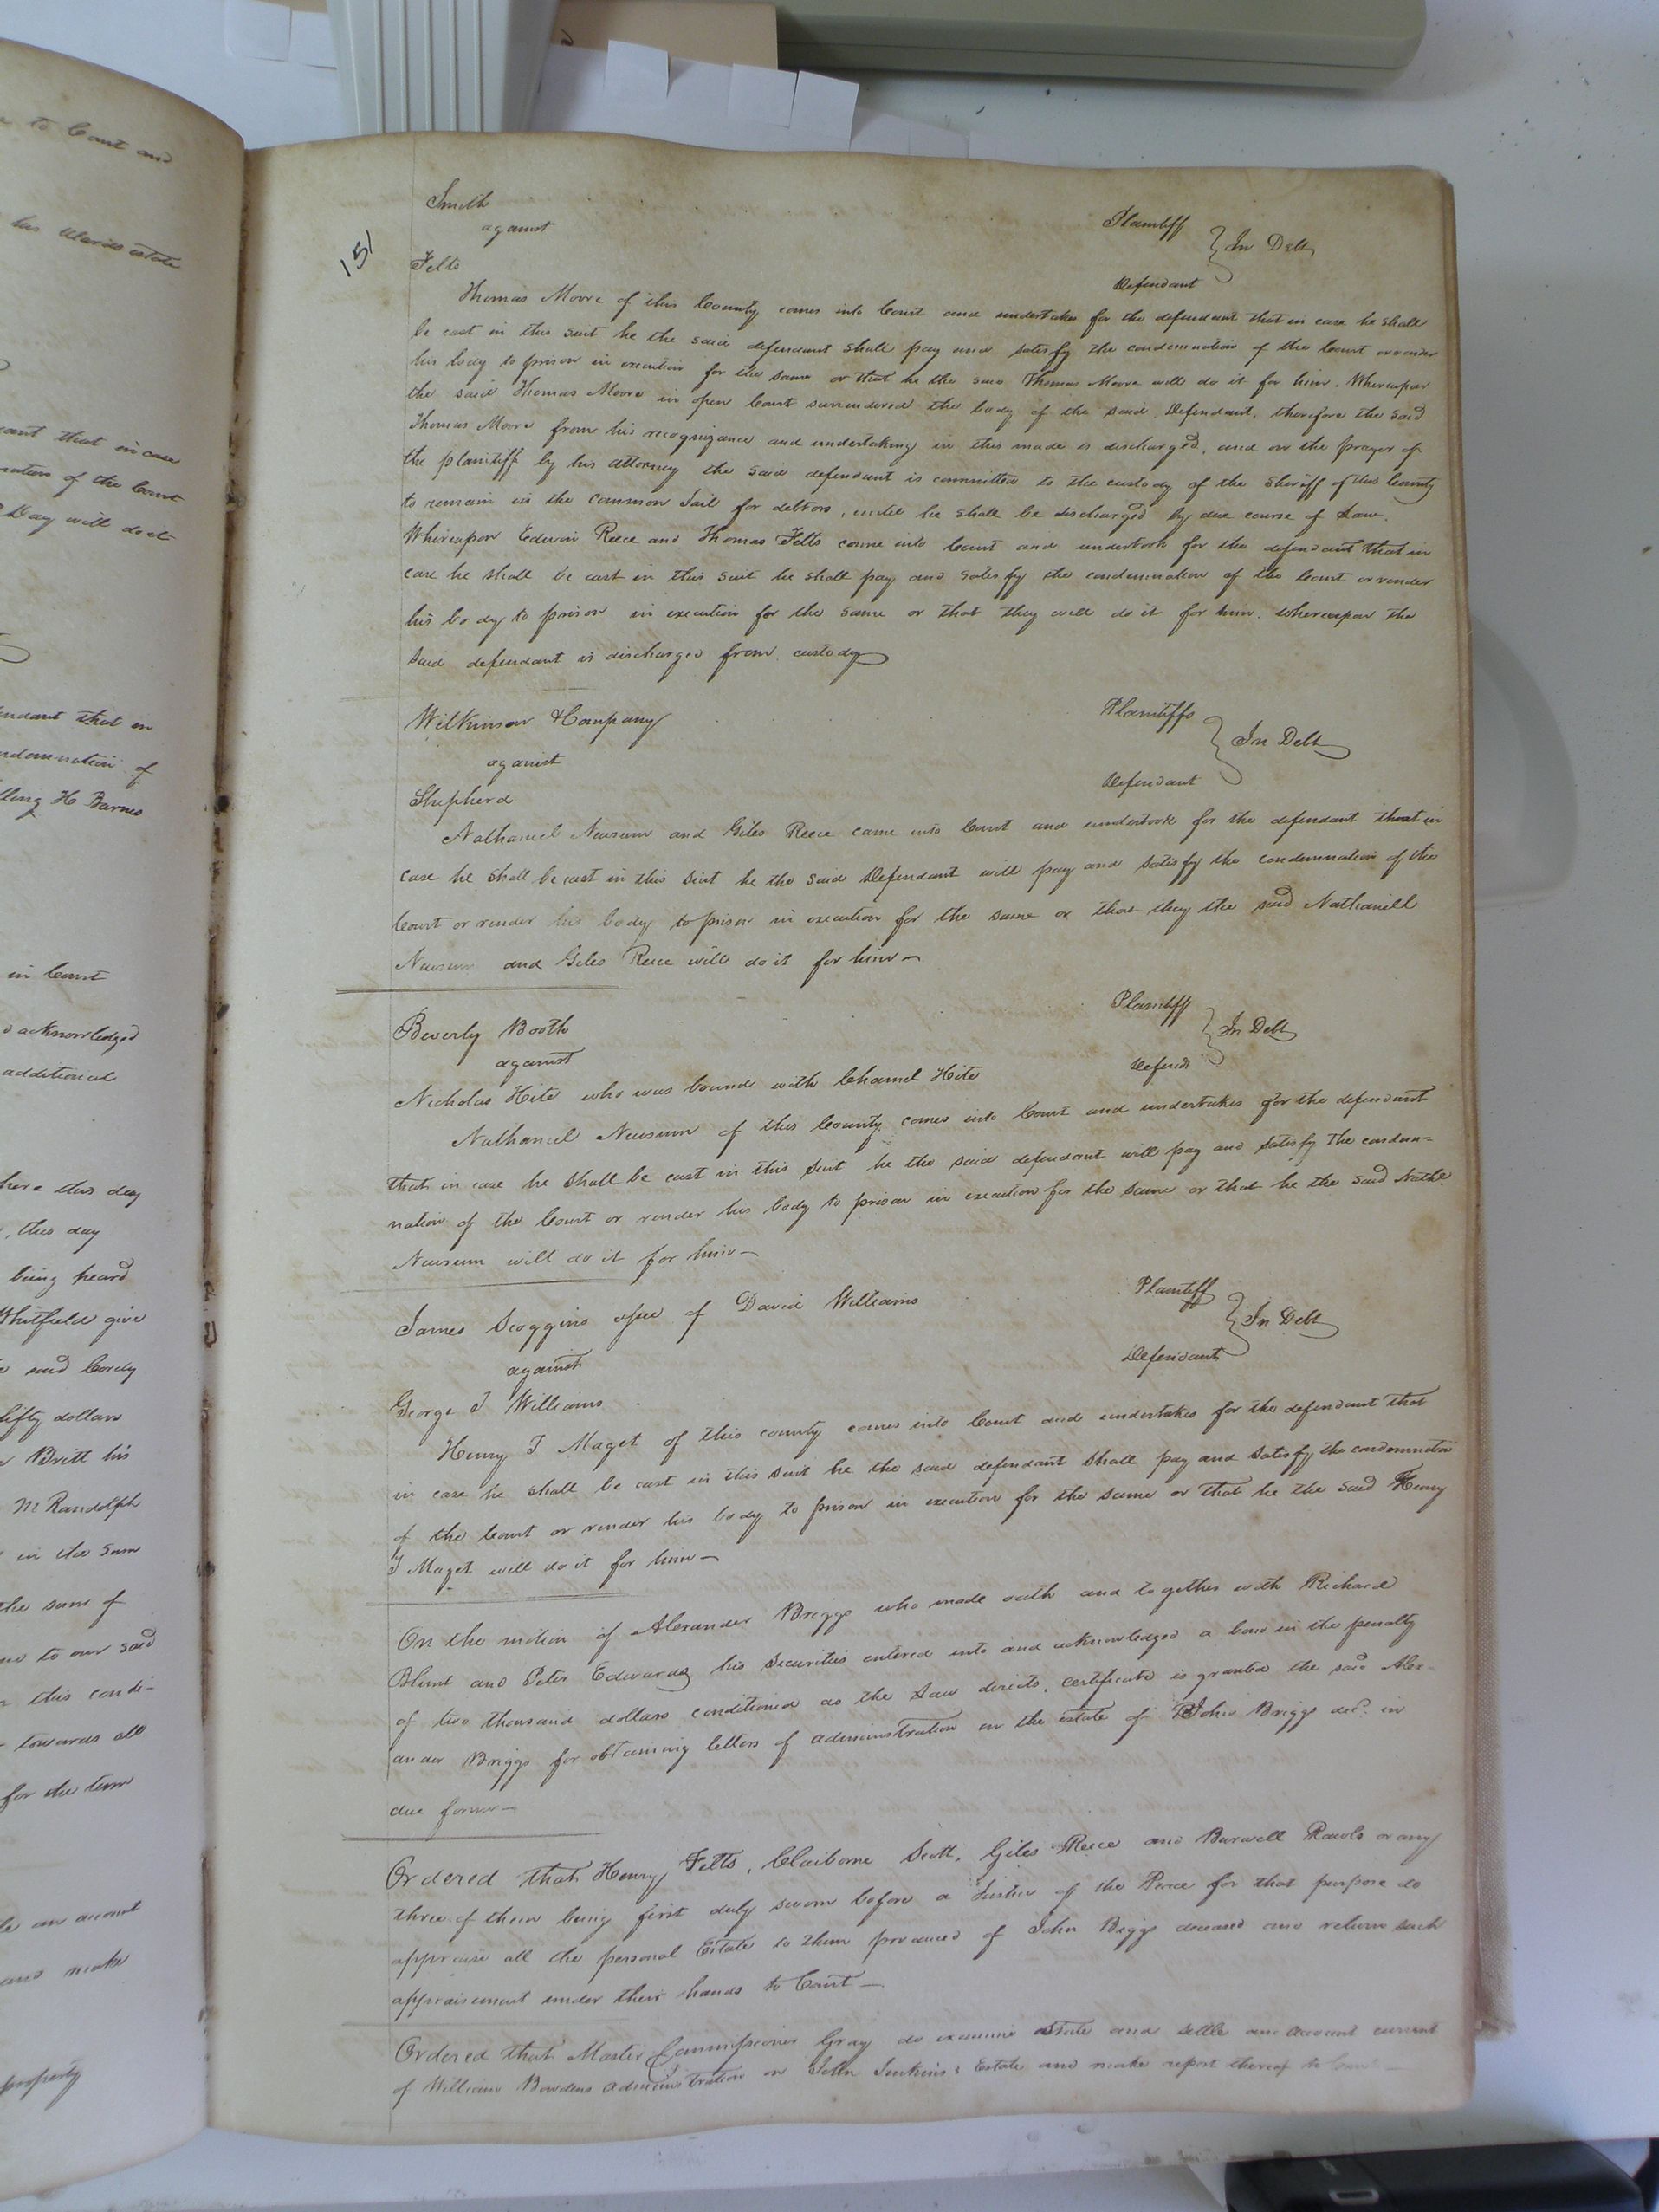 to Court and
his Maries estate
cant that in case
nation of the Court
Day will do it
endant that in
ndemnation of
ling H Barnes
in Court
acknowledged
additional
here this day
, this day
being heard
Whitfield give
said Cordy
fifty dollars
Britt his
M Randolph
in the Sum
the sum of
to our said
this condi-
towards all
for the term
an account
and make
property
151
Smith Plaintiff
against } In Debt
Felts Defendant
Thomas Moore of this County comes into Court and undertakes for the defendant that in case he shall
be cast in this suit he the said defendant shall pay and satisfy the condemnation of the Court or render
his body to prison in execution for the same or that he the said Thomas Moore will do it for him. Whereupon
the said Thomas Moore in open Court surrendered the body of the said Defendant, therefore the said
Thomas Moore from his recognizance and undertaking in this made is discharged, and on the prayer of
the plaintiff by his attorney the said defendant is committed to the custody of the Sheriff of this County
to remain in the Common Jail for debtors, until he shall be discharged by due course of Law.
Whereupon Edwin Reece and Thomas Felts came into Court and undertook for the defendant that in
case he shall be cast in this suit he shall pay and satisfy the condemnation of the Court or render
his body to prison in execution for the same or that they will do it for him. Whereupon the
said defendant is discharged from custody
Wilkinson & Company Plaintiffs
against } In Debt
Shepherd Defendant
Nathaniel Newsum and Giles Reece came into Court and undertook for the defendant that in
case he shall be cast in this suit he the said Defendant will pay and satisfy the condemnation of the
Court or render his body to prison in execution for the same or that they the said Nathaniel
Newsum and Giles Reece will do it for him —
Beverly Booth Plaintiff
against } In Debt
Nicholas Hite who was bound with Charnel Hite Defendt
Nathaniel Newsum of this County comes into Court and undertakes for the defendant
that in case he shall be cast in this suit he the said defendant will pay and satisfy the condem=
nation of the Court or render his body to prison in execution for the same or that he the said Nathl
Newsum will do it for him —
James Scoggins assee of David Williams Plaintiff
against } In Debt
George J Williams Defendant
Henry J Maget of this county comes into Court and undertakes for the defendant that
in case he shall be cast in this suit he the said defendant shall pay and satisfy the condemnation
of the Court or render his body to prison in execution for the same or that he the said Henry
J Maget will do it for him —
On the motion of Alexander Briggs who made oath and together with Richard
Blunt and Peter Edwards his Securities entered into and acknowledged a bond in the penalty
of two thousand dollars conditioned as the Law directs, certificate is granted the said Alex-
ander Briggs for obtaining letters of administration on the estate of John Briggs decd. in
due form —
Ordered that Henry Felts, Claiborne Scott, Giles Reece and Burwell Rawls or any
three of them being first duly sworn before a Justice of the Peace for that purpose do
appraise all the personal Estate to them produced of John Briggs deceased and return such
appraisement under their hands to Court —
Ordered that Master Commissioner Gray do examine state and settle an account current
of William Bowdens administration on John Jenkins's Estate and make report thereof to Court —